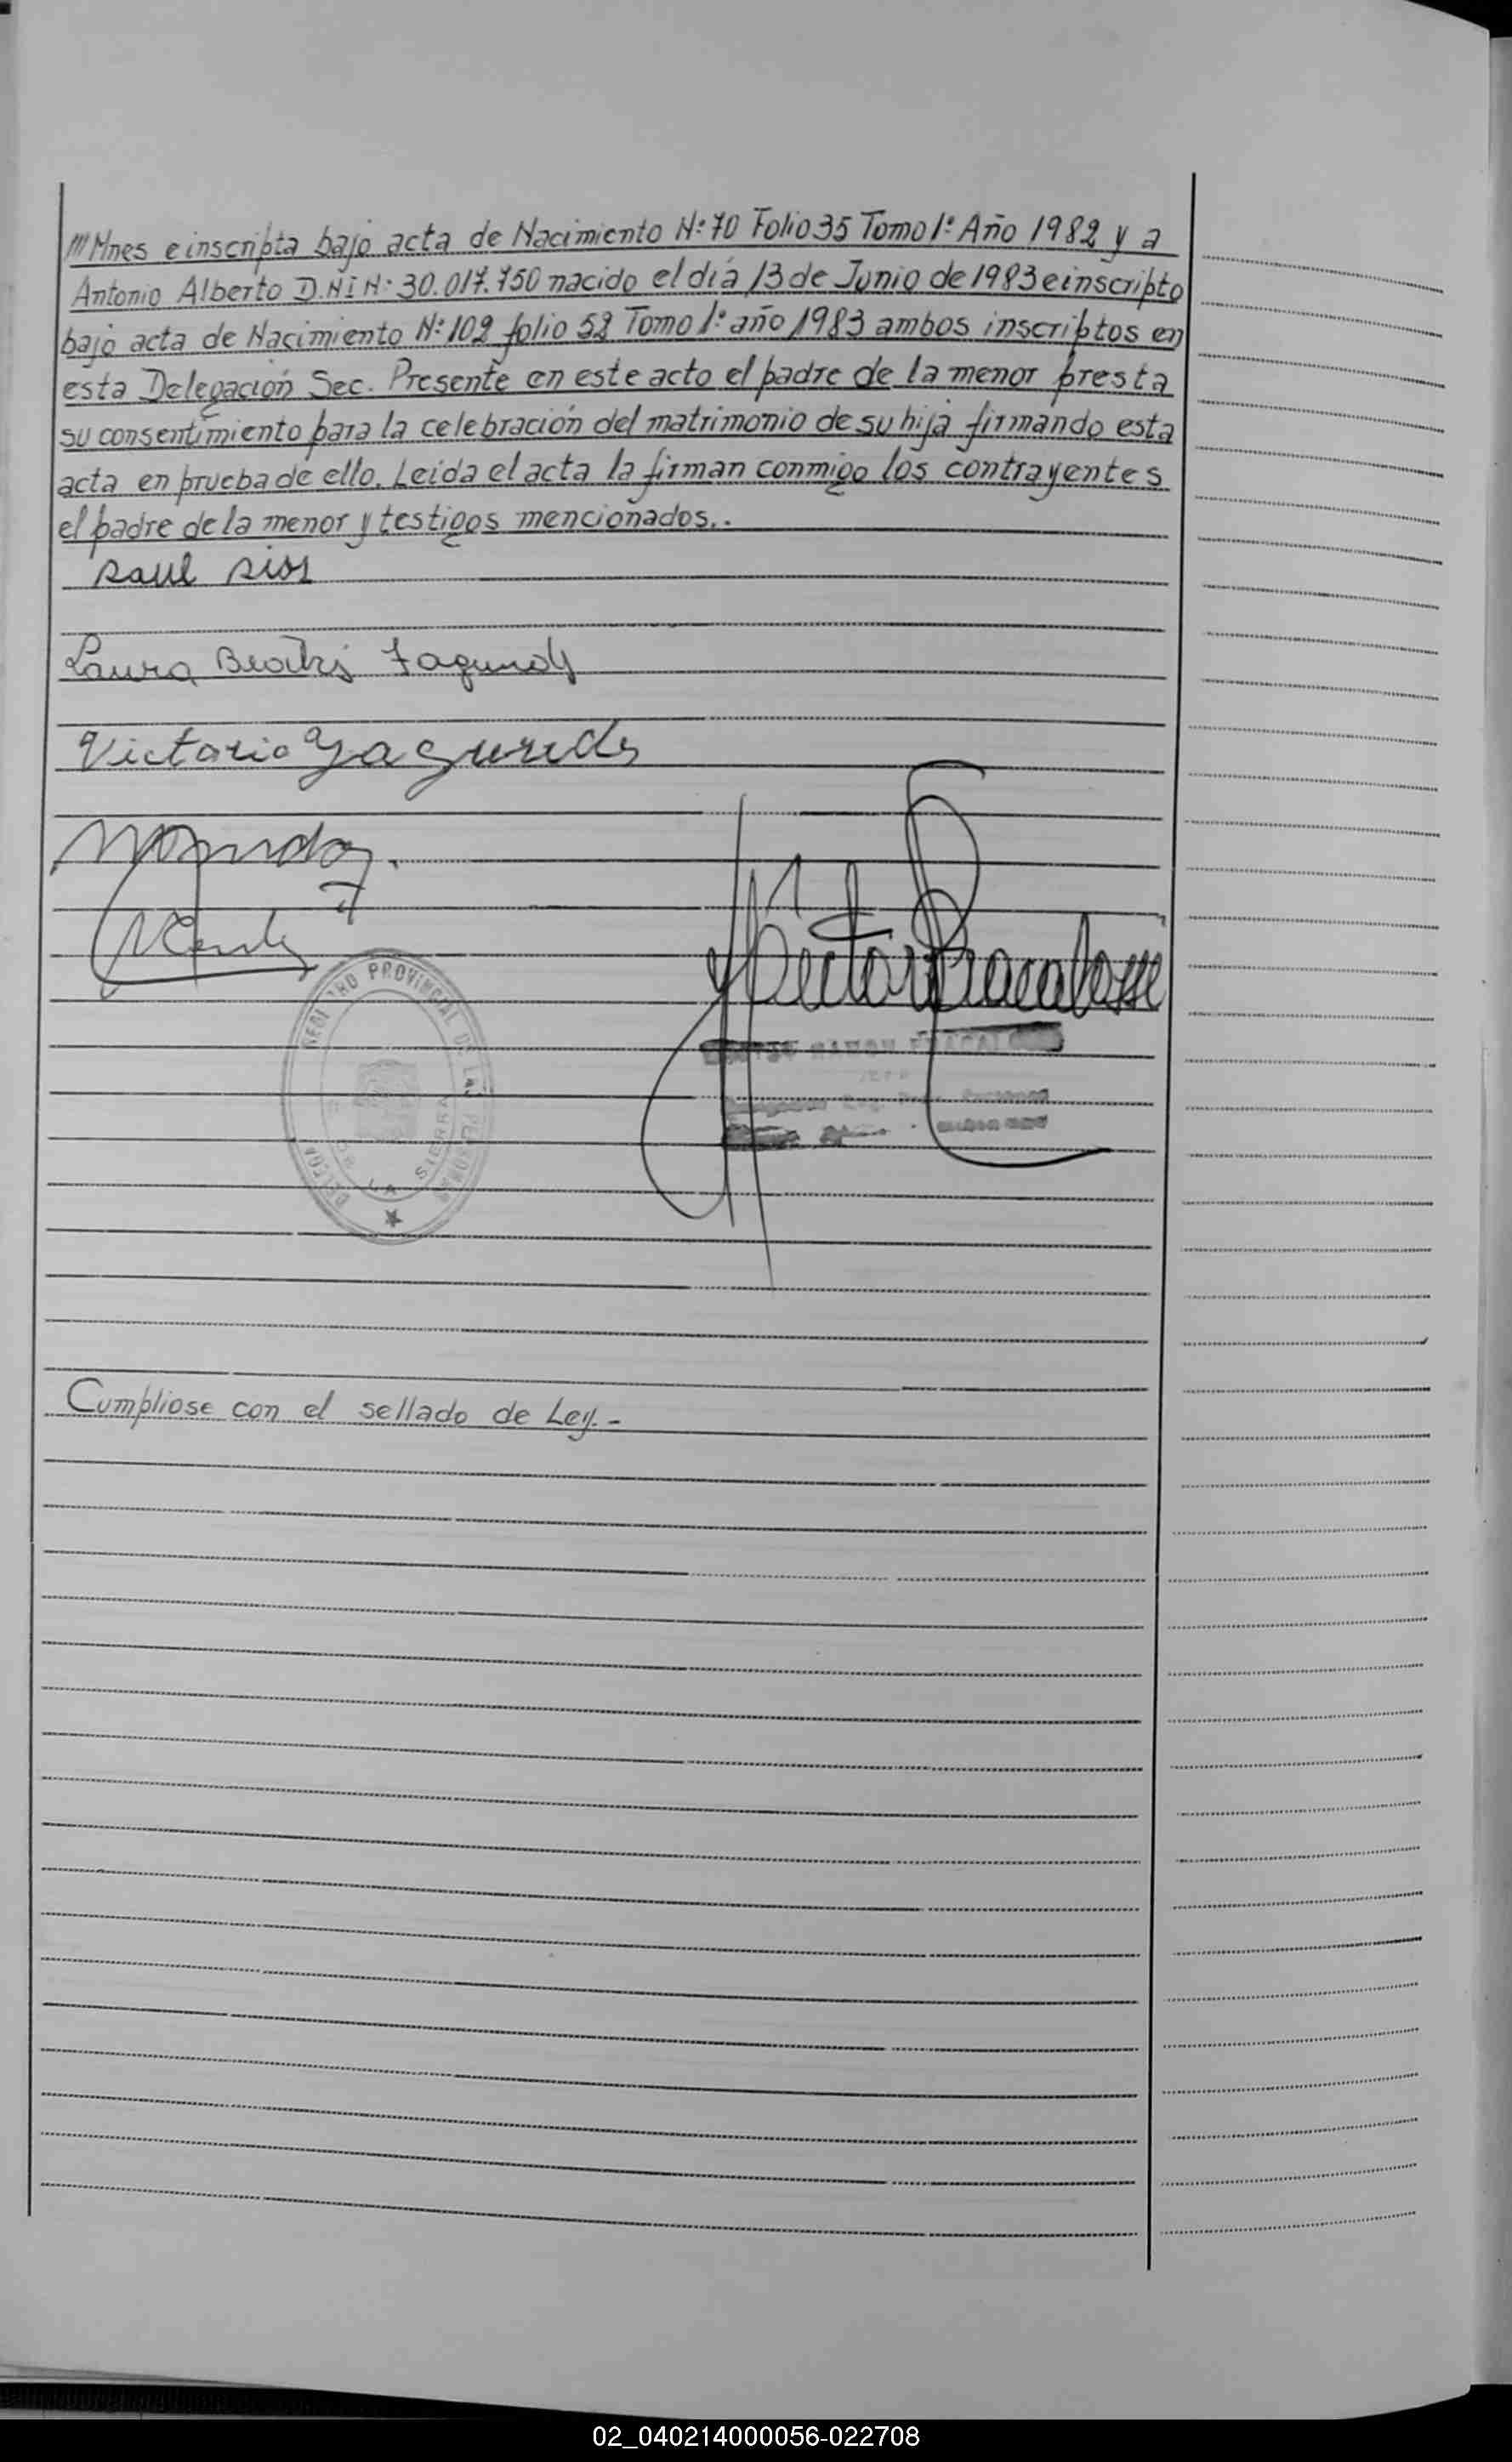 ///Mnes e inscripta bajo acta de Nacimiento N:º 70 Folio 35 Tomo 1:º Año 1982 y a
Antonio Alberto D.N.I N: 30.017.750 nacido el día 13 de Junio de 1983 e inscripto
bajo acta de Nacimiento N:º 102 folio 52 Tomo 1:º año 1983 ambos inscriptos en
esta Delegación Sec. Presente en este acto el padre de la menor presta
su consentimiento para la celebración del matrimonio de su hija firmando esta
acta en prueba de ello. Leída el acta la firman conmigo los contrayentes
el padre de la menor y testigos mencionados..
Raul Rios
Laura Beatriz Fagundez
Victorio Fagundes
REGISTRO PROVINCIAL DE LAS PERSONAS
LA SIERRA
Cumpliose con el sellado de Ley.-
02_040214000056-022708